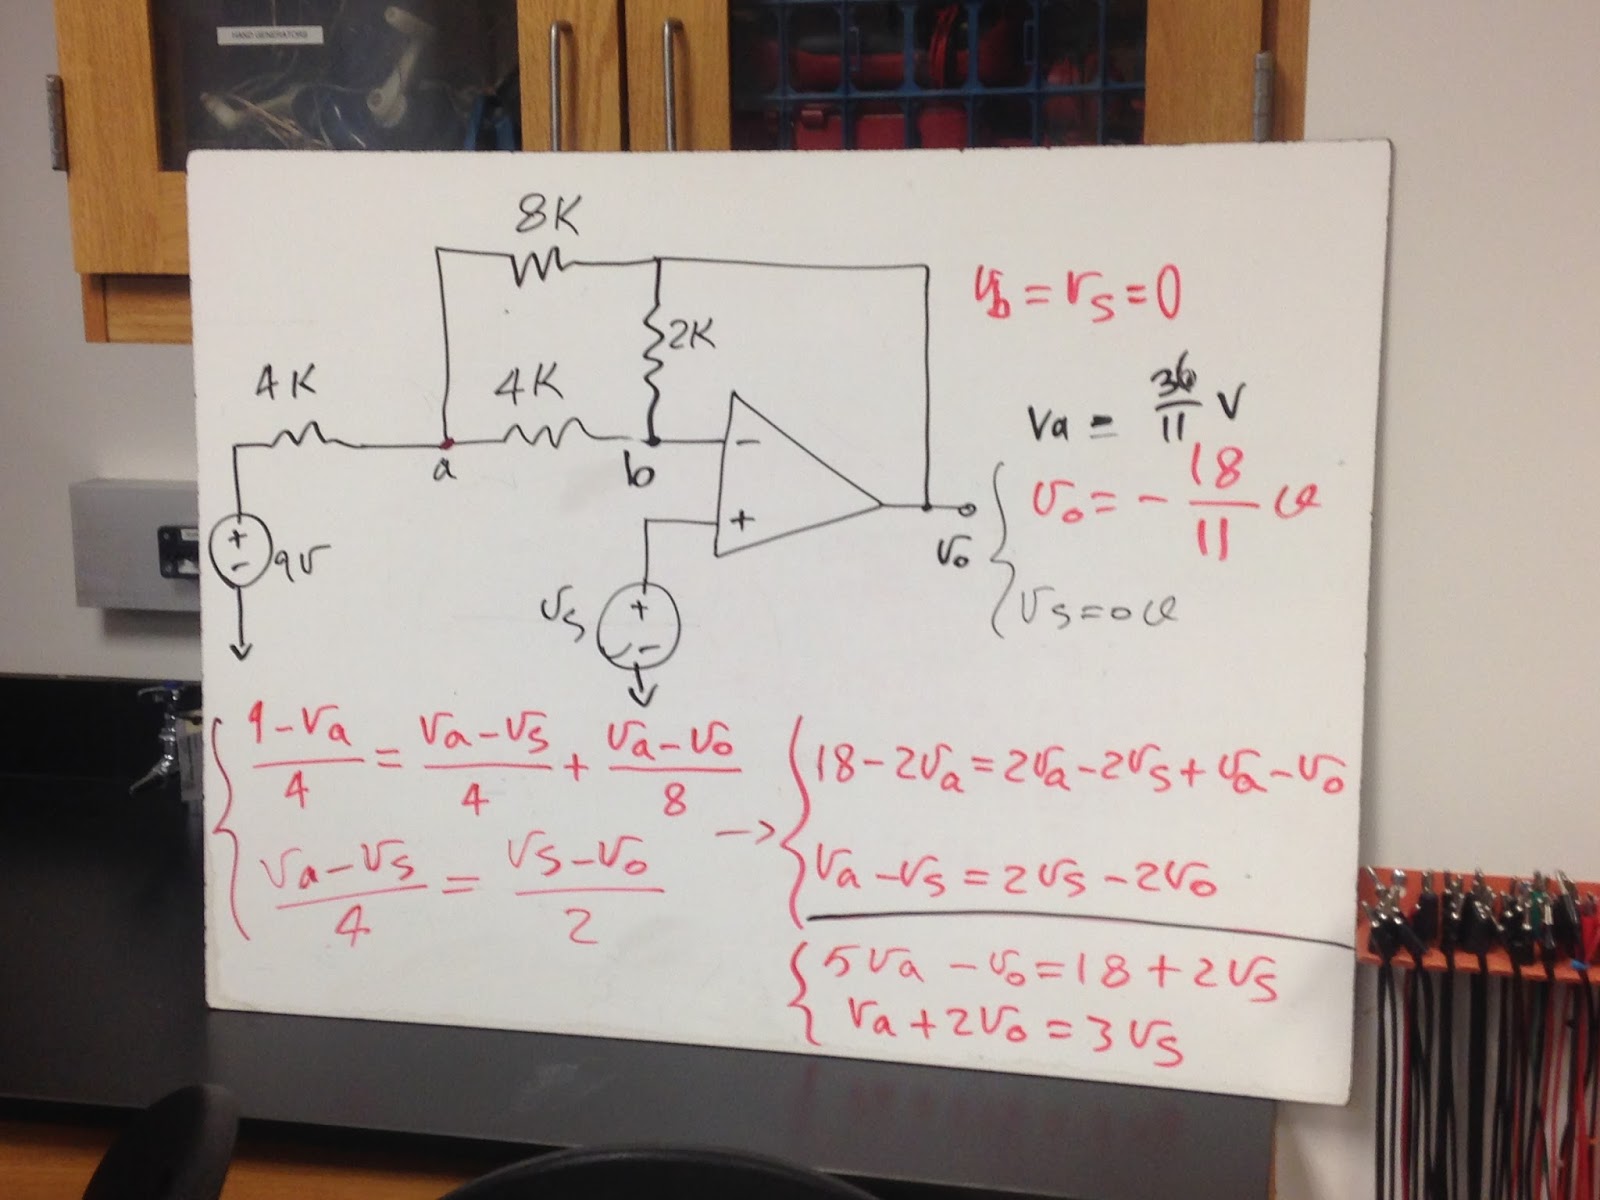 HAND GENERATORS
8K
2K
4K
4K
a
b
-
+
+
-
9V
Vs
+
-
Vo
Vb = Vs = 0
Va = 36/11 V
Vo = - 18/11 V
Vs = 0 V
9 - Va / 4 = Va - Vs / 4 + Va - Vo / 8
Va - Vs / 4 = Vs - Vo / 2
→
18 - 2Va = 2Va - 2Vs + Va - Vo
Va - Vs = 2Vs - 2Vo
5Va - Vo = 18 + 2Vs
Va + 2Vo = 3Vs